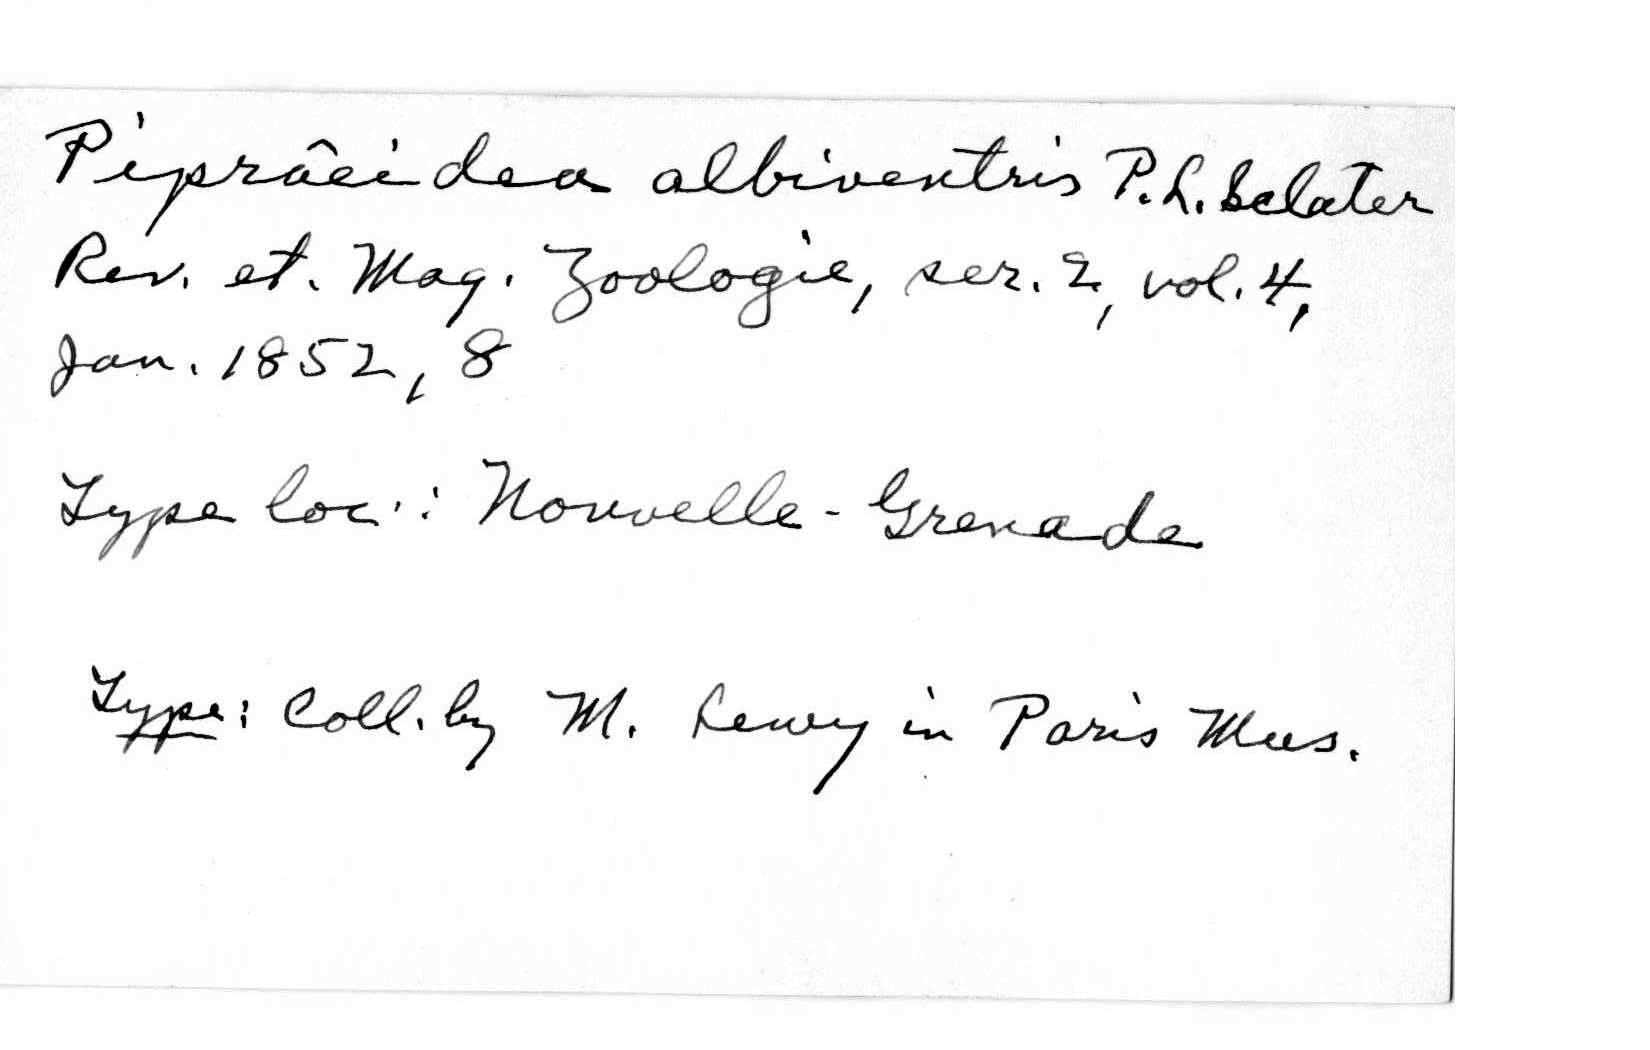 Pipraêidea albiventris P.L. Sclater
Rev. et. Mag. Zoologie, ser. 2, vol. 4,
Jan. 1852, 8
Type loc.: Nouvelle-Grenade
Type: Coll. by M. Lewy in Paris Mus.